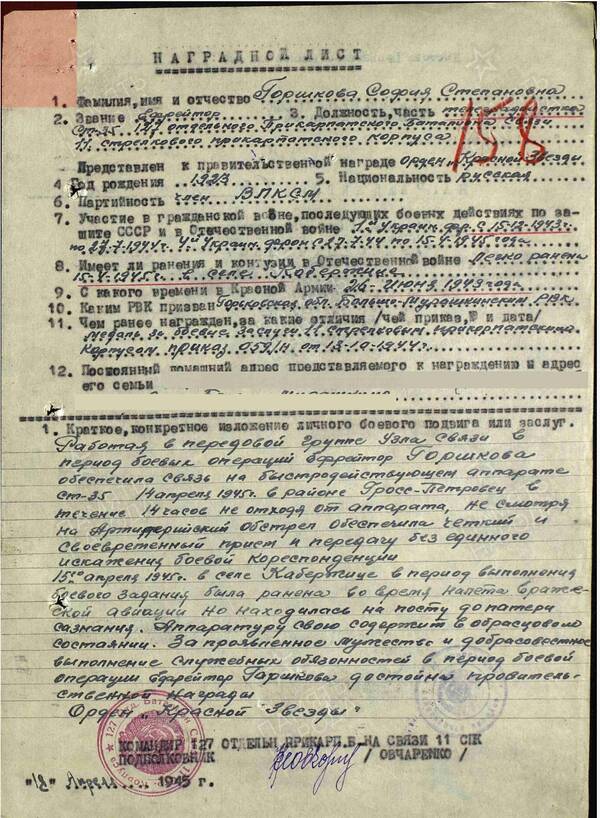 НАГРАДНОЙ ЛИСТ
1. Фамилия,имя и отчество Горшкова София Степановна
2. Звание Ефрейтор 3. Должность, часть телеграфистка
Ст-35. 127 отдельного Прикарпатского Батальона Связи
11 стрелкового прикарпатского корпуса
158
Представлен к правительственной награде Орден „Красной Звезды
4 Год рождения 1923 5. Национальность Русская
6. Партийность член ВЛКСМ
7. Участие в гражданской войне,последующих боевых действиях по за-
щите СССР и в Отечественной войне 1й Украин. фр. с 15.12.1943г.
по 27.7.1944г. 4й Украин. фронт с 27.7.44 по 15.4.1945 года
8. Имеет ли ранения и контузии в Отечественной войне Легко ранена
15.4.1945г. в селе
9. С какого времени в Красной Армии Июня 1943 года
10. Каким РВК призван Горьковская обл. Больше-Мурашкинским РВК
11. Чем ранее награжден,за какие отличия /чей приказ,№ и дата/
Медаль за Боевые Заслуги 11 Стрелковым прикарпатским
Корпусом приказ 059/н от 13.10.1944г.
12. Постоянный домашний адрес представляемого к награждению и адрес
его семьи
1. Краткое,конкретное изложение личного боевого подвига или заслуг.
Работая в передовой группе Узла связи в
период боевых операций Ефрейтор Горшкова
обеспечила связь на быстродействующем аппарате
ст-35 14 апреля 1945г. в районе Гросс-Петровец в
течение 14 часов не отходя от аппарата, не смотря
на Артилерийский обстрел обеспечила чёткий и
своевретенный прием и передачу без единного
искажения боевой кореспонденции
15го апреля 1945г. в селе Кабержице в период выполнения
боевого задания была ранена во время налета враже-
ской авиации но находилась на посту до патери
сазнания. Аппаратуру свою содержит в образцовом
состоянии. За проявленное мужество и добрасовестное
выполнение служебных обязонностей в период боевой
операции ефрейтор Горшкова достойна провитель-
ственной Награды
Орден „Красной Звезды"
КОМАНДИР 127 ОТДЕЛЬН ПРИКАРП.Б-НА СВЯЗИ 11 СПК
ПОДПОЛКОВНИК / ОВЧАРЕНКО /
"18" Апреля 1945 г.